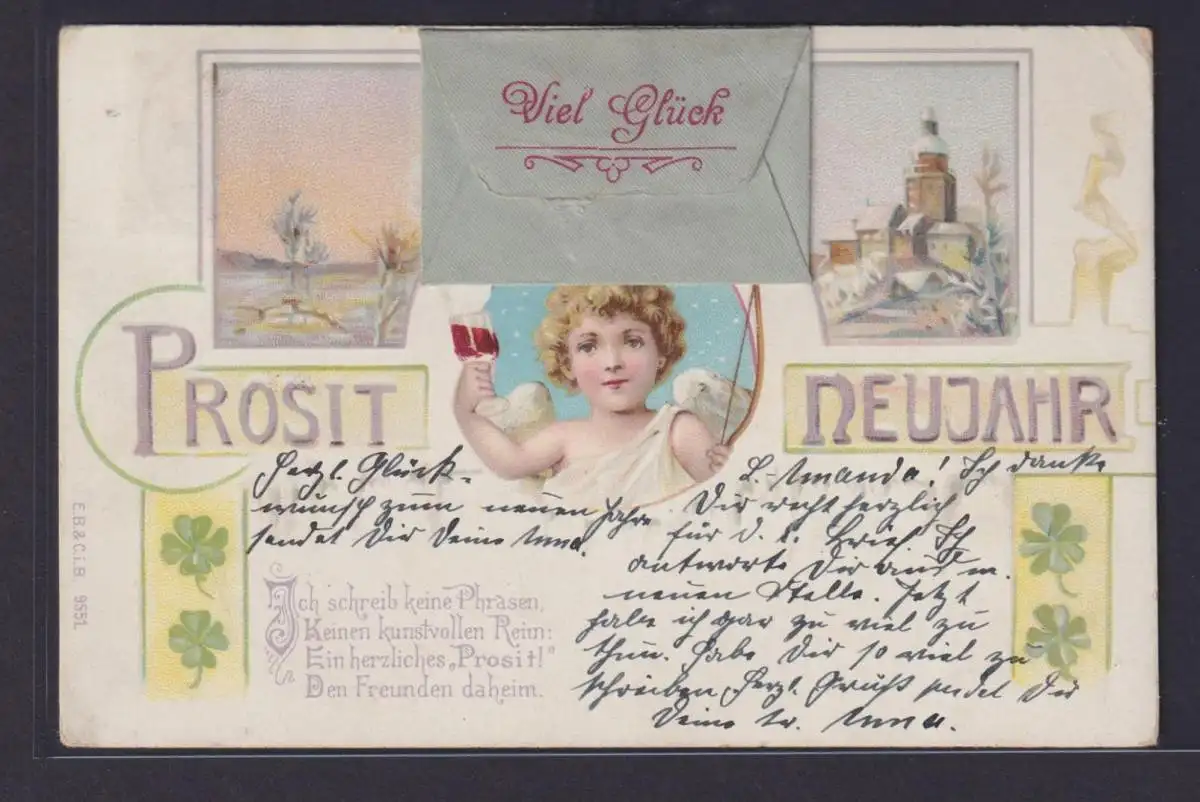 Viel Glück
PROSIT NEUJAHR
Herzl. Glück-
wunsch zum neuen Jahre
sendet Dir Deine Anna.
L. Amanda! Ich danke
Dir recht herzlich
für d. l. Brief. Ich
antworte Dir aus m.
neuen Stelle. Jetzt
habe ich gar zu viel zu
thun. Habe Dir so viel zu
schreiben, Herzl. Gruß sendet Dir
Deine tr. Anna.
Ich schreib keine Phrasen,
Keinen kunstvollen Reim:
Ein herzliches „Prosit!"
Den Freunden daheim.
E.B.&C.i.B 9551.